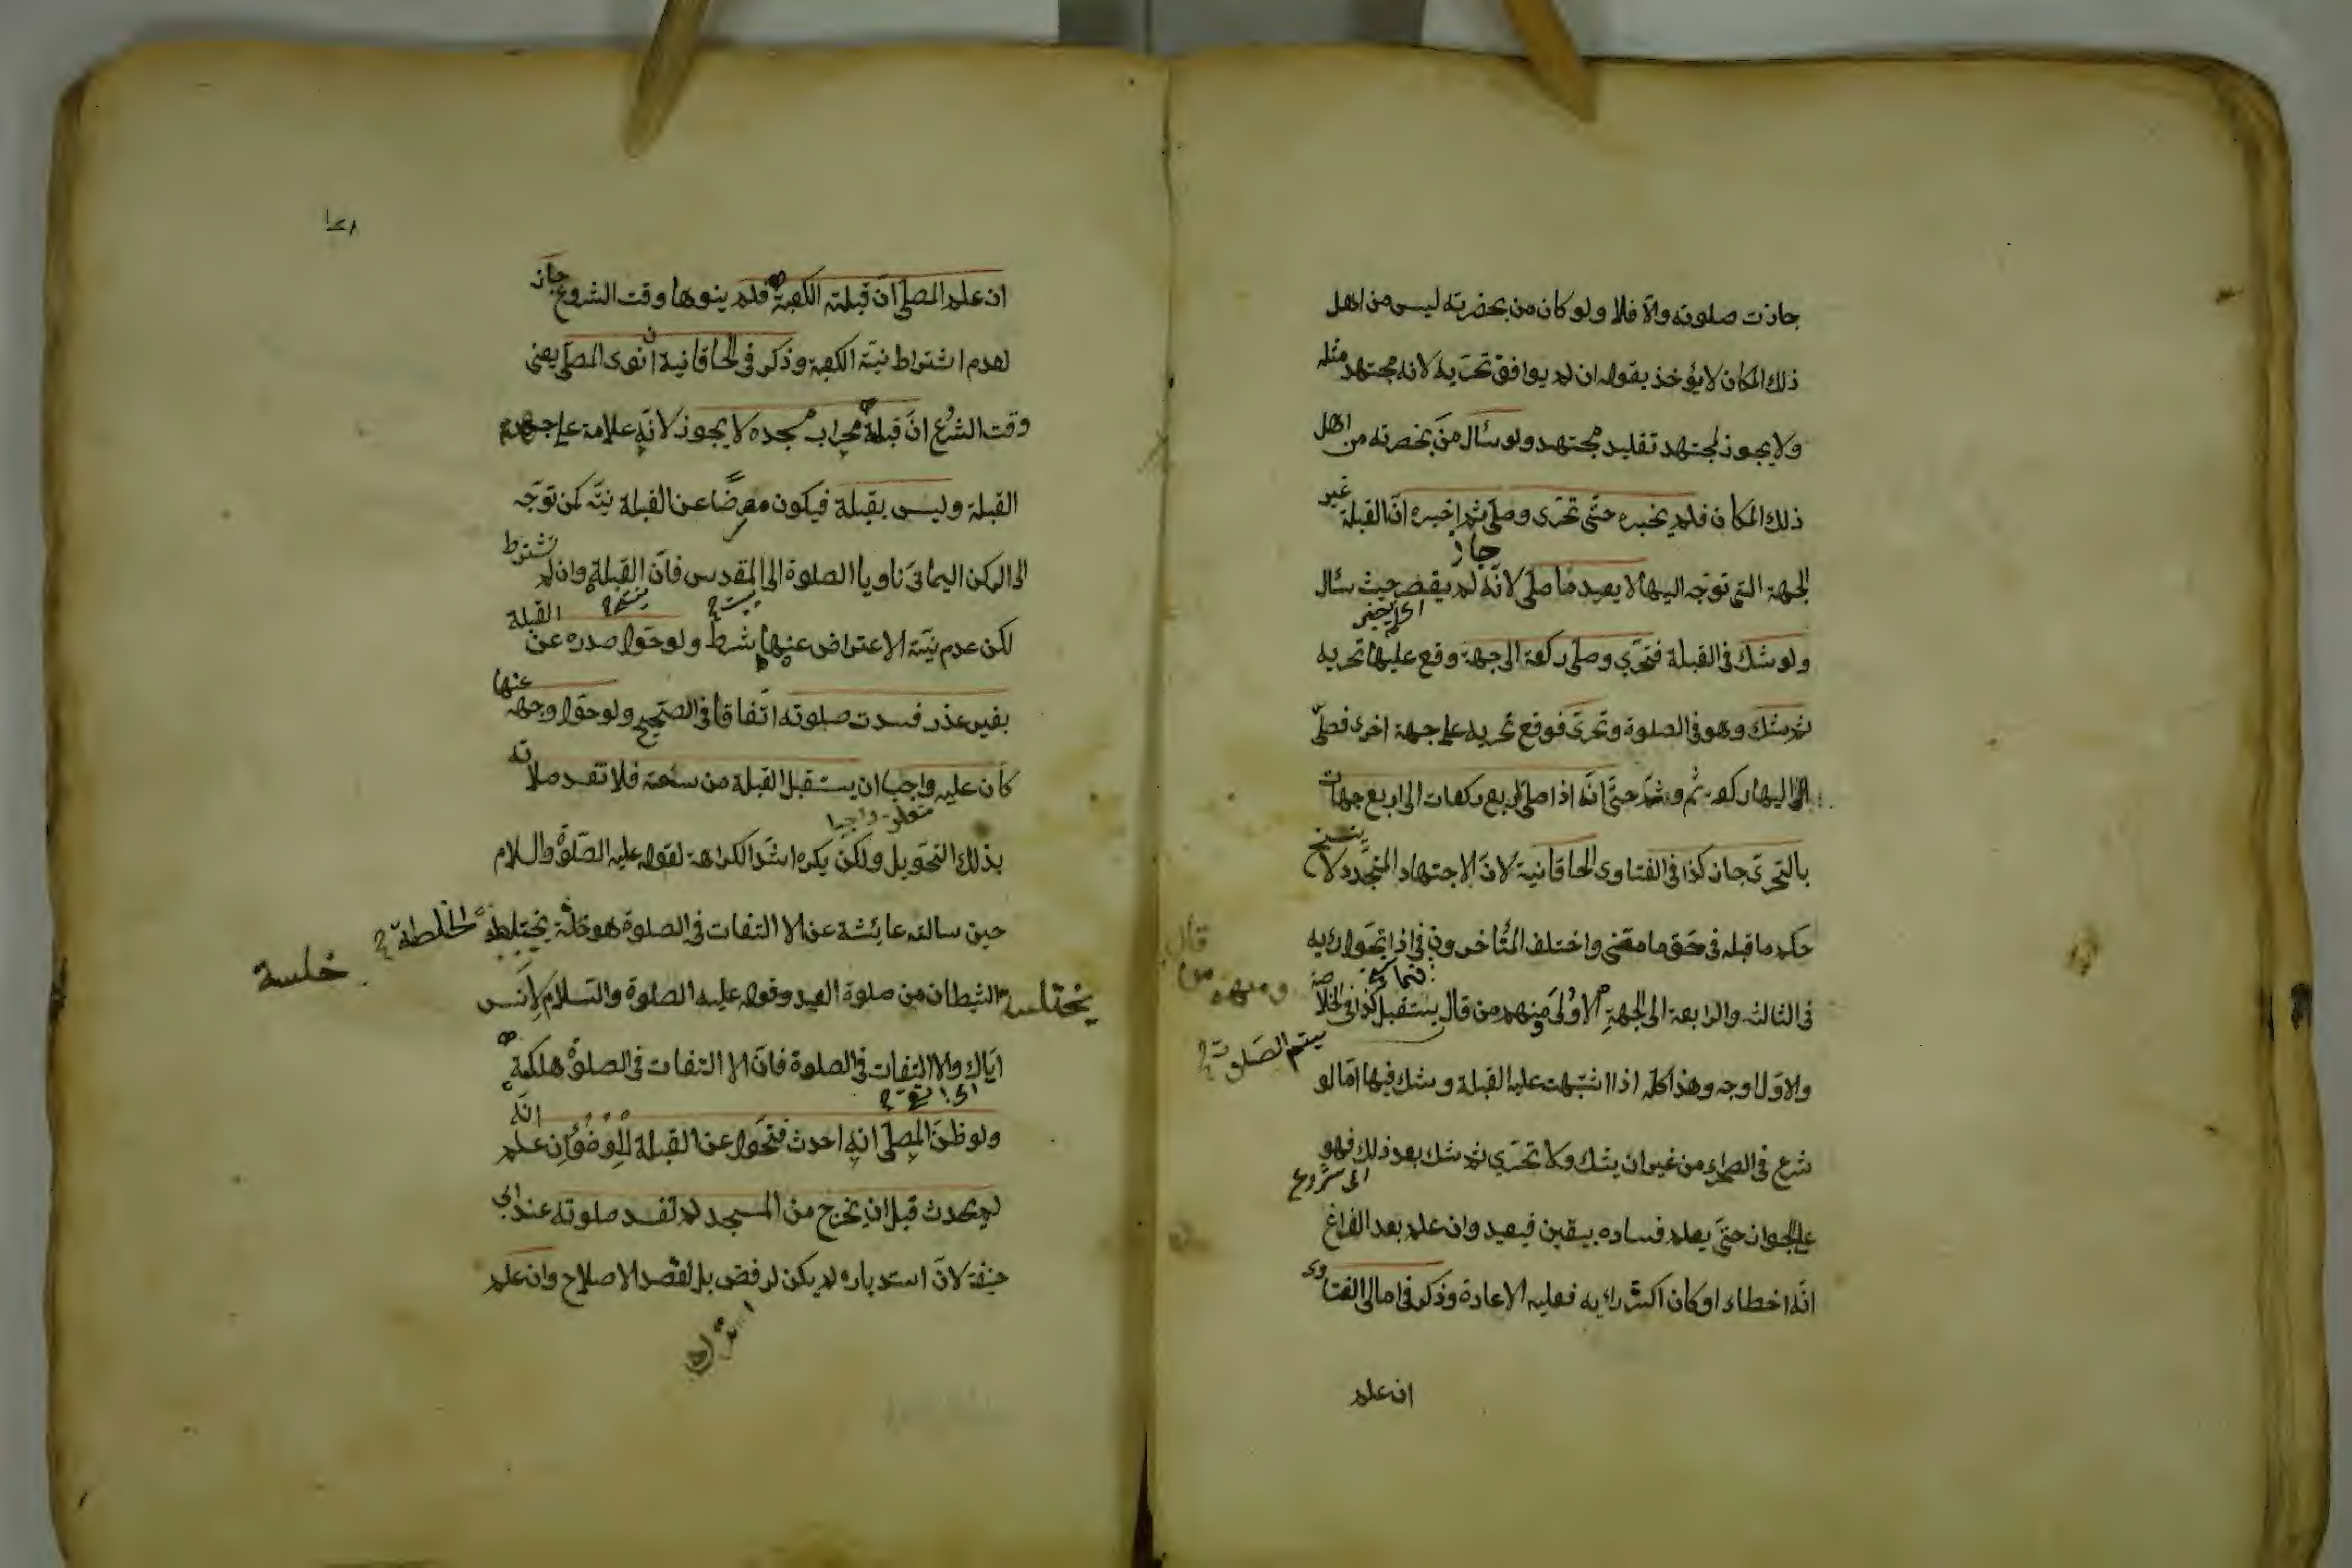 جازت صلوته والا فلا ولو كان من بحضرته ليس من اهل
ذلك المكان لا يؤخذ بقوله ان لم يوافق تحريه لانه مجتهد مثله
ولا يجوز لمجتهد تقليد مجتهد ولو سئال من بحضرته من اهل
ذلك المكان فلم يخبره حتى تحرى وصلى ثم اخبره ان القبلة غير
الجهة التى توجه اليها لا يعيد ما صلى لانه لم يقض حيث سئال
جاز
ولو شك فى القبلة فتحرى وصلى ركعة الى جهة وقع عليها تحريه
ثم شك وهو فى الصلوة وتحرى فوقع تحريه على جهة اخرى فصلى
اليها ركعة ثم وثم حتى انه اذا صلى اربع ركعات الى اربع جهات
بالتحرى جاز كذا فى الفتاوى الخاقانية لان الاجتهاد المتجدد لا ينسخ
حكم ما قبله فى حق ما مضى واختلف المتأخرون فى اذا تحول رايه
فى الثالثة والرابعة الى الجهة الاولى منهم من قال يستقبل كذا فى الخلاصة
قال
ومنهم من
يتم الصلوة
والاول اوجه وهذا كله اذا اشتبهت عليه القبلة وشك فيها اما لو
شرع فى الصحراء من غير ان يشك ولا تحرى ثم شك بعد ذلك فهو
اى شروع
على الجواز حتى يعلم فساده بيقين فيعيد وان علم بعد الفراغ
انه اخطاء او كان اكثر رايه فعليه الاعادة وذكر فى امالى الفتاوى
ان علم
ان علم المصلى ان قبلته الكعبة فلم ينوها وقت الشروع جاز
لعدم اشتراط نية الكعبة وذكر فى الخاقانية ان نوى المصلى يعنى
وقت الشرع ان قبلة محراب مسجده لا يجوز لانه علامة على جهة
القبلة وليس بقبلة فيكون معرضا عن القبلة نية كمن توجه
الى الركن اليمانى ناويا الصلوة الى المقدس فان القبلة وان لم تشترط
لكن عدم نية الاعتراض عنها شرط ولو حول صدره عن القبلة
بغير عذر فسدت صلوته اتفاقا فى الصحيح ولو حول وجهه عنها
كان عليه واجبا ان يستقبل القبلة من سعته فلا تفسد صلاته
بذلك التحويل ولكن يكره اشد الكراهة لقوله عليه الصلوة والسلام
حين سالته عايشة عن الالتفات فى الصلوة هو خلة يختلطه
خلسة
يختلسه
الشيطان من صلوة العبد وقوله عليه الصلوة والسلام لانس
اياك والالتفات فى الصلوة فان الالتفات فى الصلوة هلكة
ولو ظن المصلى انه احدث فتحول عن القبلة للوضوء ان علم انه
لم يحدث قبل ان يخرج من المسجد لم تفسد صلوته عند ابى
حنيفة لان استدباره لم يكن لرفض بل لقصد الاصلاح وان علم